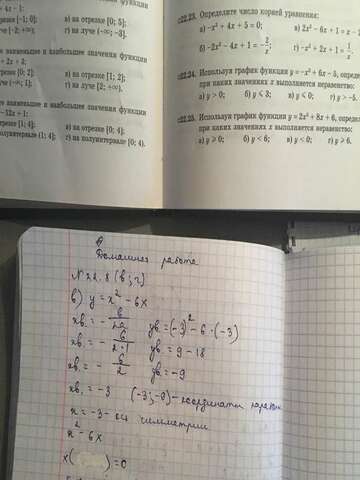 [-1; 0];
в) на отрезке [0; 5];
г) на луче (-∞; -3].
наименьшее и наибольшее значения функции
+ 2x + 3;
отрезке [0; 2];
в) на отрезке [1; 2];
луче (-∞; 1];
г) на луче [2; +∞).
наименьшее и наибольшее значения функции
отрезке [1; 4];
в) на отрезке [0; 4);
полуинтервале (1; 4];
г) на полуинтервале [0; 4).
c22.23. Определите число корней уравнения:
а) -x² + 4x + 5 = 0;
б) -2x² - 4x + 1 = -2/x;
г) -x² + 2x + 1 =
c22.24. Используя график функции y = -x² + 6x - 5, опреде
при каких значениях x выполняется неравенство:
а) y > 0; б) y ≤ 3; в) y ≤ 0; г) y > -5.
c22.25. Используя график функции y = 2x² + 8x + 6, опреде
при каких значениях x выполняется неравенство:
а) y ≥ 0; б) y < 6; в) y < 0; г) y ≥ 6.
Домашняя работа
№22.8 (в; г)
в) y = x² - 6x
xв. = - б/2a yв = (-3)² - 6 · (-3)
xв. = - 6/2·1 yв = 9 - 18
xв. = - 6/2 yв = -9
xв. = -3 (-3; -9) - координаты
x = -3 - ось симметрии
x² - 6x
x( ) = 0